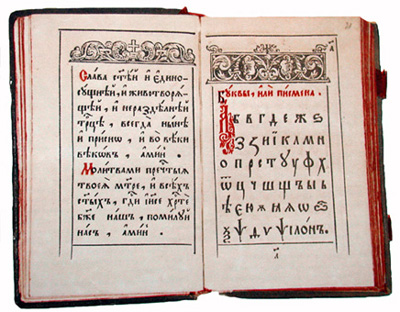 Сла́ва ст҃ѣ́й и҆ є҆дино
сꙋ́щнѣй, и҆ животворѧ́
щей, и҆ нераздѣ́лнѣй
трⷪ҇цѣ, всегда̀ ны́нѣ
и҆ при́снѡ, и҆ во вѣ́ки
вѣкѡ́въ, а҆ми́нь.
Моли́твами пречⷭ҇тыѧ
твоеѧ̀ мт҃ре, и҆ всѣ́хъ
ст҃ы́хъ, гдⷭ҇и і҆и҃се хрⷭ҇те
бж҃е на́шъ, поми́лꙋй
на́съ, а҆ми́нь.
Бꙋ́квы, и҆лѝ пи́смена.
А Б В Г Д Е Ж Ѕ
З И Ї К Л М Н
О П Р С Т Ꙋ Ф Х
Ѿ Ц Ч Ш Щ Ъ Ы Ь